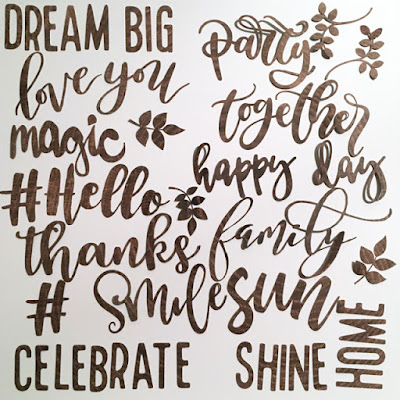 DREAM BIG
love you
magic
#Hello
thanks
# smile
CELEBRATE
party
together
happy day
family
sun
SHINE
HOME